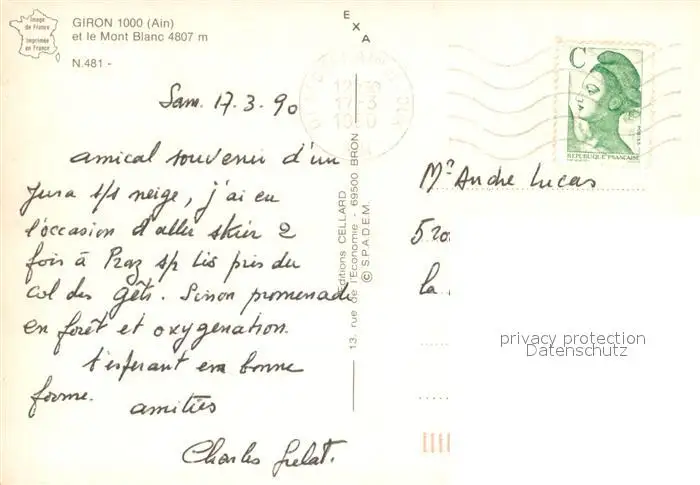 Image
de France
Imprimée
en France
GIRON 1000 (Ain)
et le Mont Blanc 4807 m
N.481 -
EXA
Sam. 17.3.90
amical souvenir d'un
Jura s/s neige, j'ai eu
l'occasion d'aller skier 2
fois à Praz sp lis près du
col des Gêts. Sinon promenade
en forêt et oxygénation.
t'espérant en bonne
forme. amitiés
Charles
Editions CELLARD
13, rue de l'Economie - 69500 BRON
© S.P.A.D.E.M.
17-3
C
REPUBLIQUE FRANÇAISE
Mr André Lucas
la
privacy protection
Datenschutz